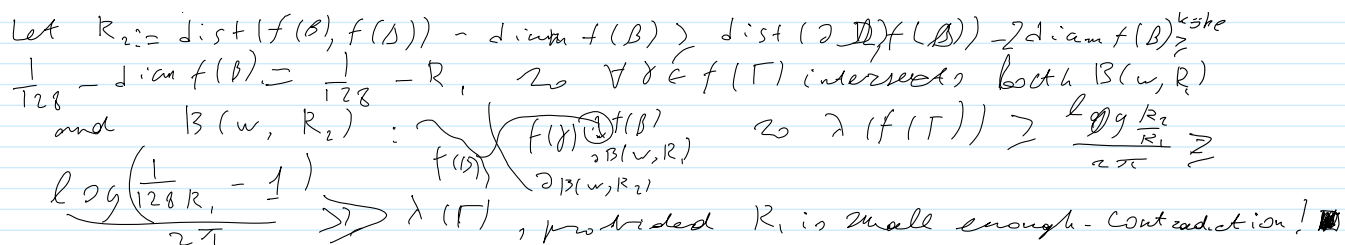 Let R₂ := dist(f(β), f(Δ)) - diam f(β) ≥ dist(∂D, f(β)) - 2 diam f(β) ≥ Köbe
1/128 - diam f(β) = 1/128 - R₁ so ∀ γ ∈ f(Γ) intersects both B(w, R₁)
and B(w, R₂) : f(Δ) f(γ) f(β) ∂B(w, R₁) ∂B(w, R₂) so λ(f(Γ)) ≥ log R₂/R₁ / 2π ≥
log(1/128R₁ - 1) / 2π >> λ(Γ), provided R₁ is small enough - contradiction!